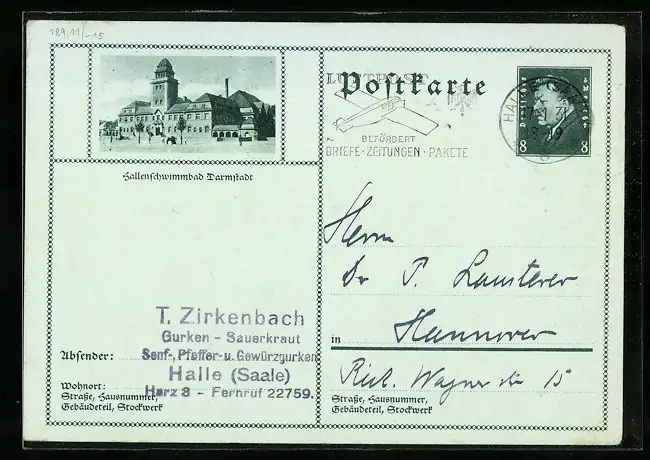 189,11/-15
Hallenschwimmbad Darmstadt
Postkarte
LUFTPOST
BEFÖRDERT
BRIEFE · ZEITUNGEN · PAKETE
HALLE (SAALE)
8 8
Herrn
Dr P. Lansterer
in Hannover
Rich. Wagner Str 15
Straße, Hausnummer,
Gebäudeteil, Stockwerk
T. Zirkenbach
Gurken - Sauerkraut
Senf-, Pfeffer- u. Gewürzgurken
Halle (Saale)
Harz 8 - Fernruf 22759.
Absender:
Wohnort:
Straße, Hausnummer,
Gebäudeteil, Stockwerk